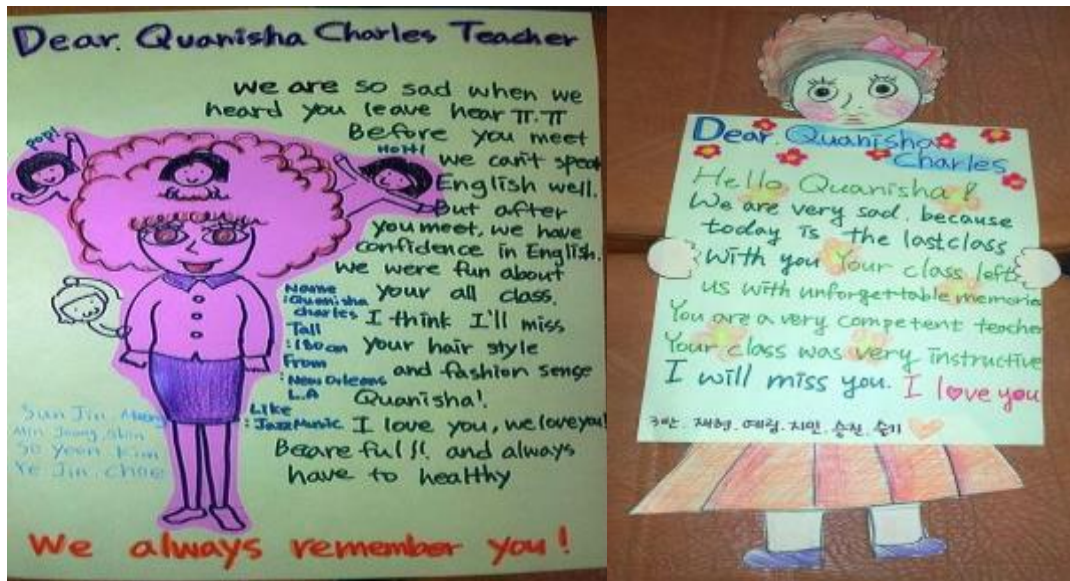 Dear. Quanisha Charles Teacher
we are so sad when we
heard you leave hear ㅠ.ㅠ
Before you meet
we can't speak
English well.
But after
you meet, we have
confidence in English.
we were fun about
your all class.
I think I'll miss
your hair style
and fashion sense
Quanisha!
I love you, we love you!
Becareful!! and always
have to healthy
pop!
HOH!
Name
:Quanisha
charles
Tall
:180cm
From
:New Orleans
L.A
Like
:Jazz Music
Sun Jin.
Min Jeong.shin
So Yeon Kim
Ye Jin. Choe
We always remember you!
Dear. Quanisha
Charles
Hello Quanisha!
We are very sad. because
today is the last class
with you Your class left
us with unforgettable memorie
You are a very competent teacher
Your class was very instructive
I will miss you. I love you
3반. 재현. 예림. 지민. 승진. 슬기